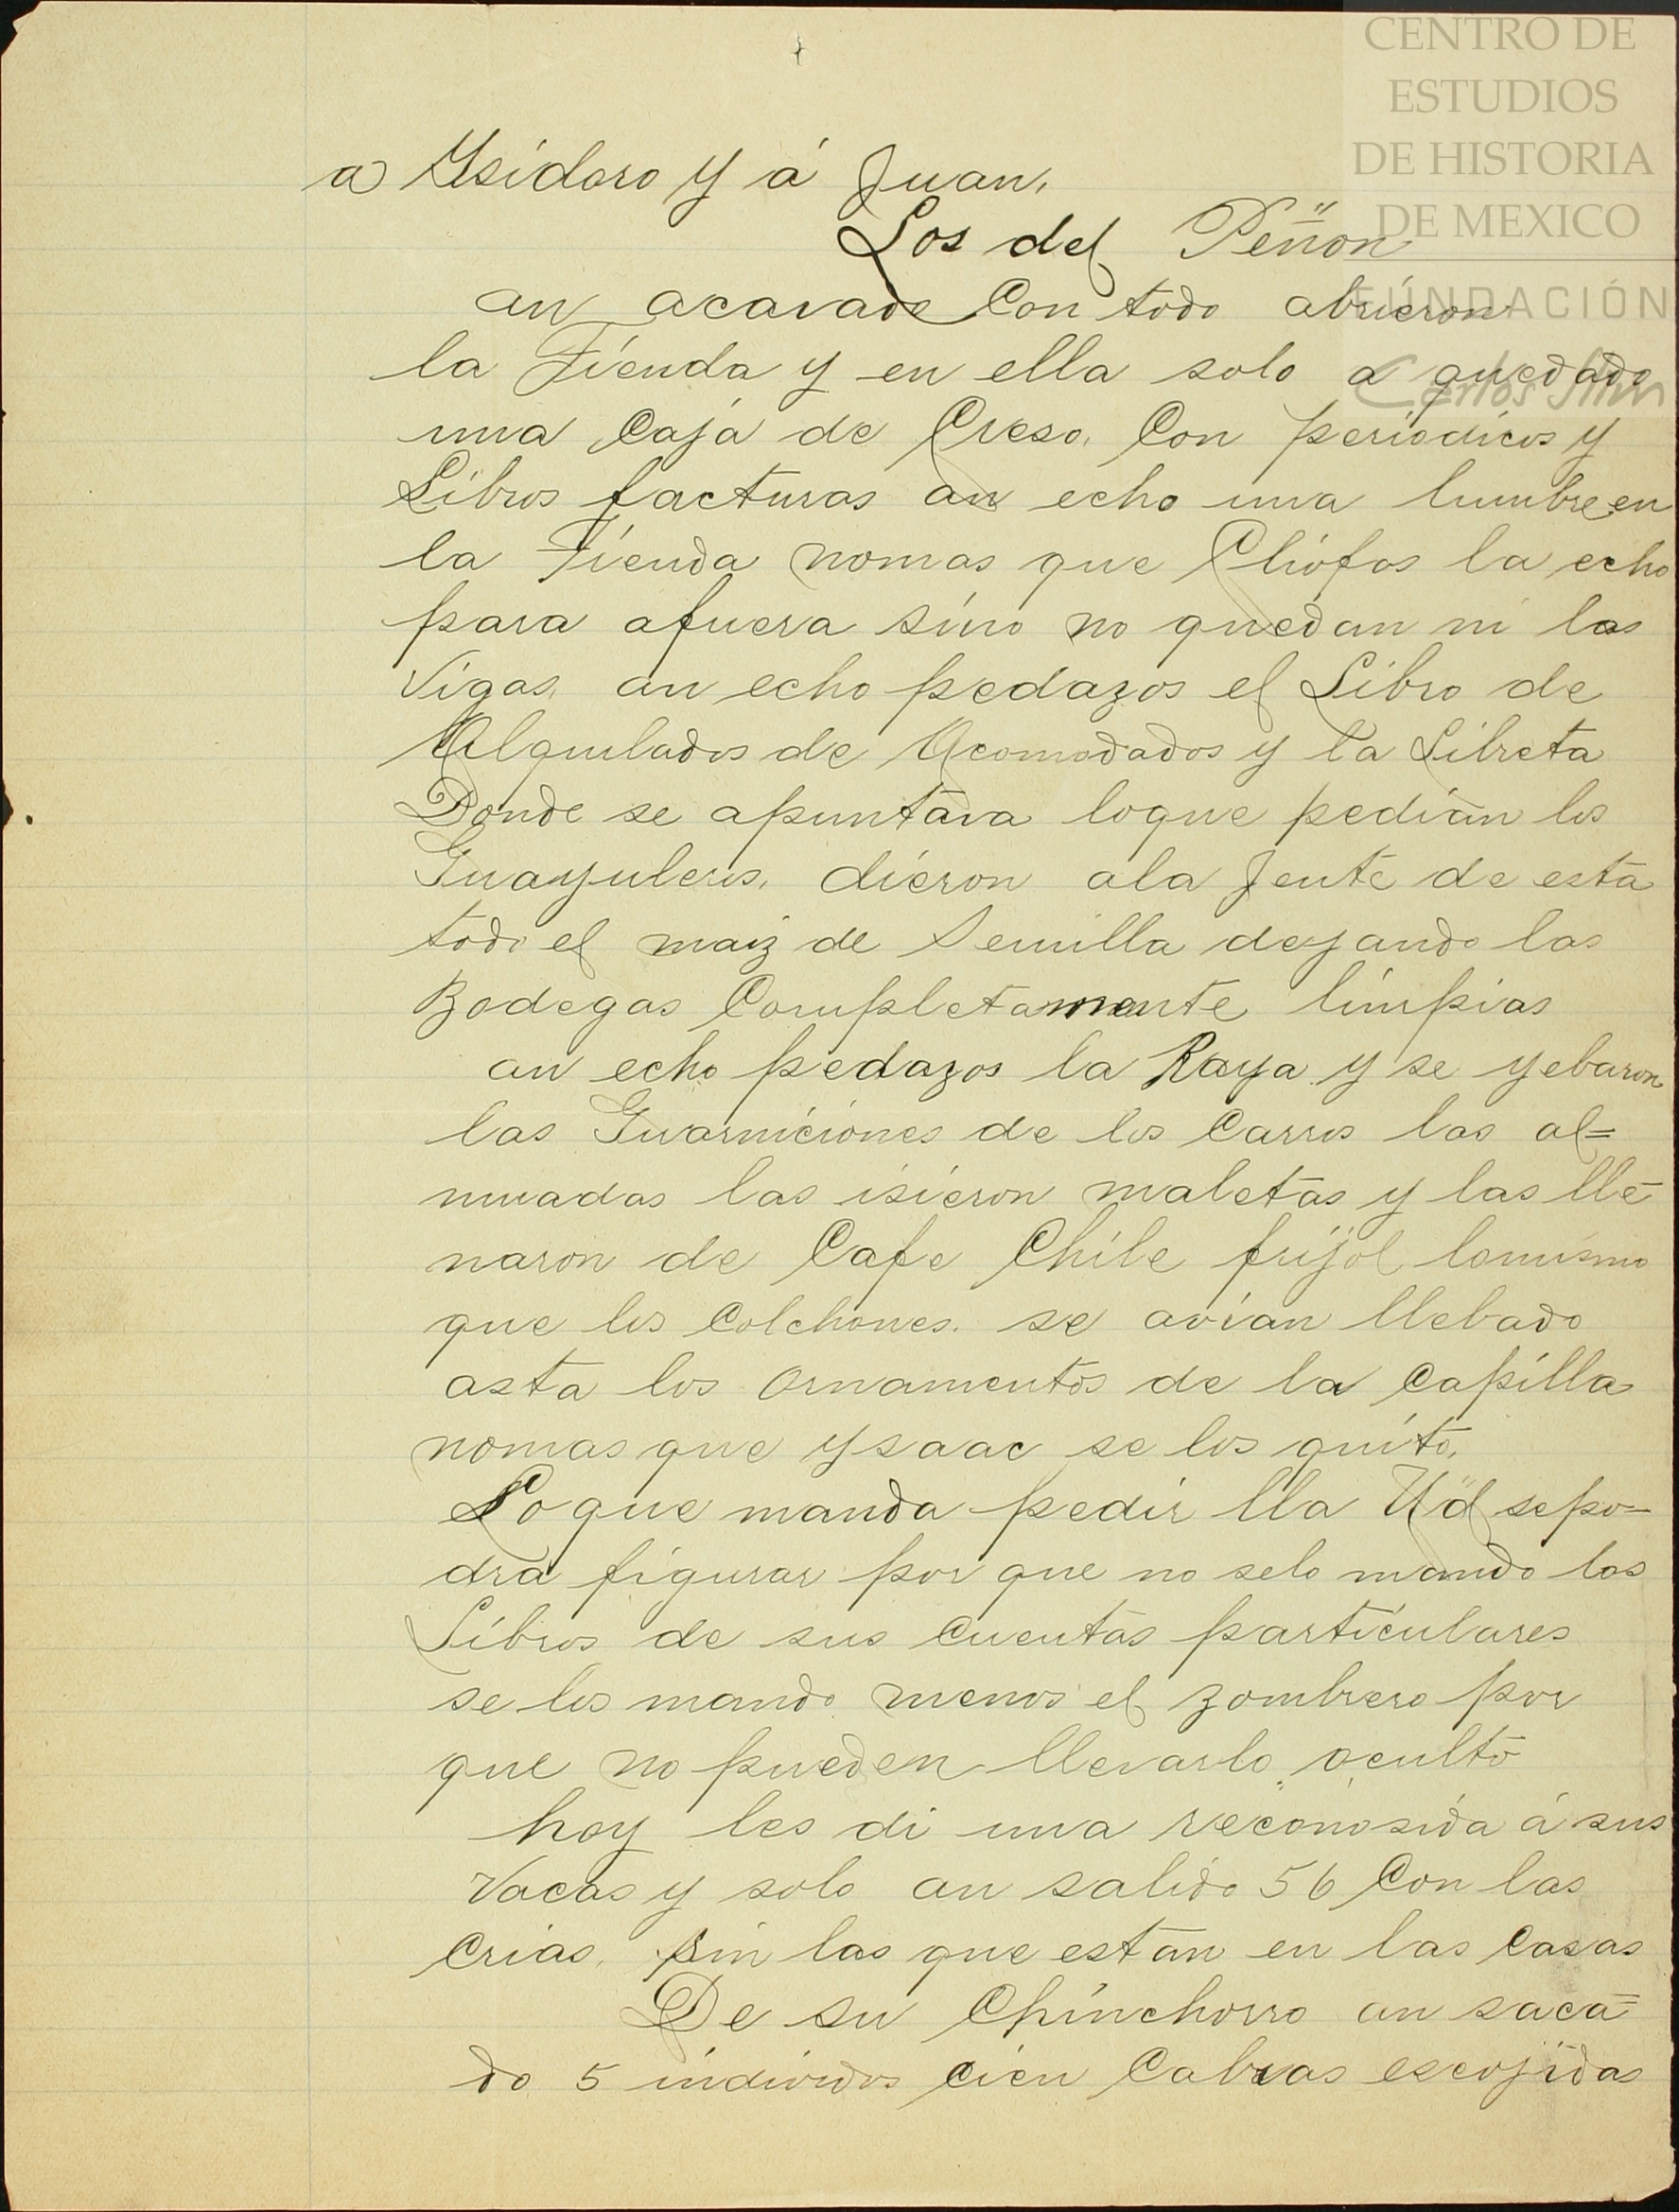 CENTRO DE
ESTUDIOS
DE HISTORIA
DE MEXICO
FUNDACIÓN
Carlos Slim
a Ysidoro y á Juan.
Los del Peñon
an acavado Con todo abrieron
la Tienda y en ella solo a quedado
una Caja de Creso. Con periodicos y
Libros facturas an echo una lumbre en
la Tienda nomas que Cliofas la echo
para afuera sino no quedan ni las
Vigas. an echo pedazos el Libro de
Alquilados de Acomodados y la Libreta
Donde se apuntava loque pedian los
Guayuleros. dieron ala Jente de esta
todo el maiz de Semilla deyando las
Bodegas Completamante limpias
an echo pedazos la Raya y se yebaron
las Guarniciones de los Carros las al=
muadas las isieron maletas y las lle-
naron de Cafe Chile frijol lomismo
que los Colchones. se avian llebado
asta los Ornamentos de la Capilla
nomas que ysaac se los quito.
Lo que manda pedir lla Ud sepo-
dra figurar por que no selo mando los
Libros de sus Cuentas particulares
se los mando menos el zombrero por
que no pueden llevarlo oculto
hoy les di una reconosida á sus
Vacas y solo an salido 56 Con las
Crias. sin las que estan en las Casas
De su Chinchorro an saca=
do 5 indiordos Cien Cabras escojidas